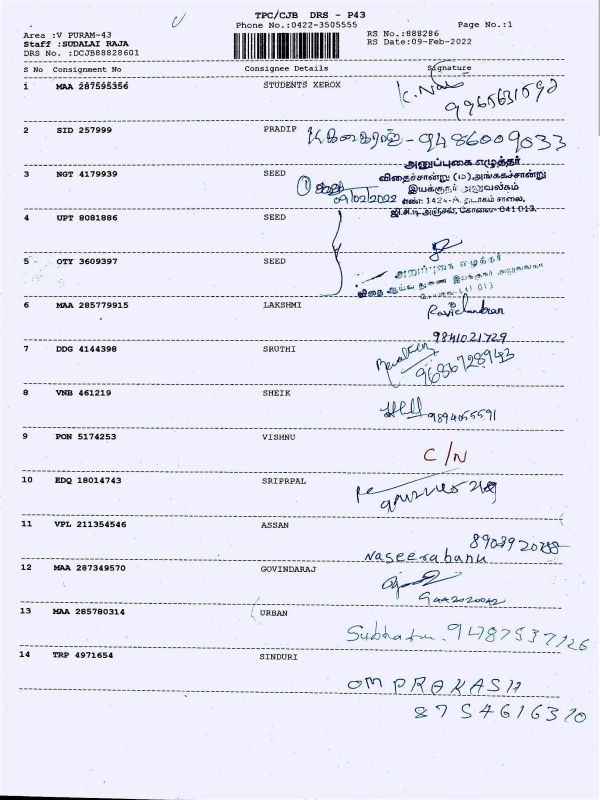 TPC/CJB DRS - P43
Phone No.:0422-3505555
Page No.:1
Area :V PURAM-43
RS No.:888286
Staff :SUDALAI RAJA
RS Date:09-Feb-2022
DRS No. :DCJB88828601
S No Consignment No Consignee Details Signature
1 MAA 287595356 STUDENTS XEROX
9965631592
2 SID 257999 PRADIP
- 9486009033
3 NGT 4179939 SEED
அனுப்புகை எழுத்தர்
விதைச்சான்று (ம) அங்ககச்சான்று
இயக்குநர் அலுவலகம்
எண்: 1424-A, தடாகம் சாலை,
ஜி.சி.டி அஞ்சல், கோவை- 641 013.
09/02/2022
4 UPT 8081886 SEED
5 OTY 3609397 SEED
அனுப்புகை எழுத்தர்
6 MAA 285779915 LAKSHMI
Ravichandran
9841021729
7 DDG 4144398 SRUTHI
8 VNB 461219 SHEIK
9894055591
9 PON 5174253 VISHNU
C/N
10 EDQ 18014743 SRIPRPAL
11 VPL 211354546 ASSAN
Naseerabanu
12 MAA 287349570 GOVINDARAJ
13 MAA 285780314 URBAN
9487537126
14 TRP 4971654 SINDURI
OM PRAKASH
8754616320